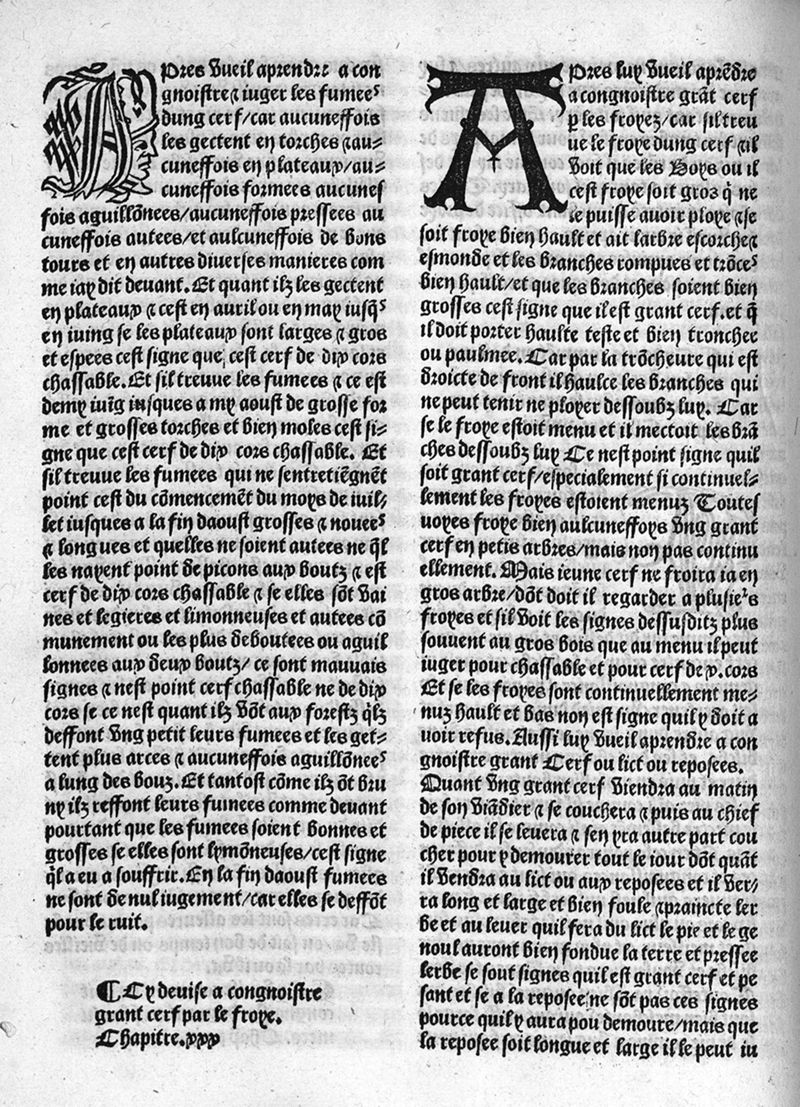 Apres vueil aprendre a con
gnoistre ⁊ iuger les fumeeˢ
dung cerf/car aucuneffois
les gectent en torches ⁊ au⸗
cuneffois en plateaux/au⸗
cuneffois formees aucunef
fois aguillōnees/aucuneffois pressees au
cuneffois autees/et aulcuneffois de bons
tours et en autres diuerses manieres com
me iay dit deuant. Et quant ilz les gectent
en plateaux ⁊ cest en auril ou en may iusq̄ˢ
en iuing se les plateaux sont larges ⁊ gros
et espees cest signe que cest cerf de dix cors
chassable. Et sil treuue les fumees ⁊ ce est
demy iuīg iusques a my aoust de grosse for
me et grosses torches et bien moles cest si⸗
gne que cest cerf de dix cors chassable. Et
sil treuue les fumees qui ne sentretiēgnēt
point cest du cōmencemēt du moys de iuil⸗
let iusques a la fin daoust grosses ⁊ nouerˢ
⁊ longues et quelles ne soient autees ne q̄l
les nayent point de picons aux boutz ⁊ est
cerf de dix cors chassable ⁊ se elles sōt vai
nes et legieres et limonneuses et autees cō
munement ou les plus deboutees ou aguil
lonnees aux deux boutz/ ce sont mauuais
signes ⁊ nest point cerf chassable ne de dix
cors se ce nest quant ilz vōt aux forestz q̄lz
deffont vng petit leurs fumees et les get⸗
tent plus arces ⁊ aucuneffois aguillōneeˢ
a lung des bouz. Et tantost cōme ilz ōt bru
ny ilz reffont leurs fumees comme deuant
pourtant que les fumees soient bonnes et
grosses se elles sont lymōneuses/cest signe
q̄l a eu a souffrir. En la fin daoust fumees
ne sont de nul iugement/car elles se deffōt
pour le ruit.
¶ Cy deuise a congnoistre
grant cerf par le froye.
Chapitre.xxx
Apres luy vueil aprēdre
a congnoistre grāt cerf
ꝑ les froyez/car sil treu
ue le froye dung cerf ⁊ il
voit que les boys ou il
cest froye soit gros q̄ ne
le puisse auoir ploye ⁊ se
soit froye bien hault et ait larbre escorche⁊
esmonde et les branches rompues et trōceˢ
bien hault/et que les branches soient bien
grosses cest signe que il est grant cerf. et q̄
il doit porter haulte teste et bien tronchee
ou paulmee. Car par la trōcheure qui est
droicte de front il haulce les branches qui
ne peut tenir ne ployer dessoubz luy. Car
se le froye estoit menu et il mectoit les brā
ches dessoubz luy Ce nest point signe quil
soit grant cerf/especialement si continuel⸗
lement les froyes estoient menuz Toutes
uoyes froye bien aulcuneffoys vng grant
cerf en petis arbres/mais non pas continu
ellement. Mais ieune cerf ne froira ia en
gros arbre/dōt doit il regarder a plusieˀs
froyes et sil voit les signes dessusditz plus
souuent au gros bois que au menu il peut
iuger pour chassable et pour cerf de x. cors
Et se les froyes sont continuellement me⸗
nuz hault et bas non est signe quil y doit a
uoir refus. Aussi luy vueil aprendre a con
gnoistre grant Cerf ou lict ou reposees.
Quant vng grant cerf viendra au matin
de son viādier ⁊ se couchera ⁊ puis au chief
de piece il se leuera ⁊ sen yra autre part cou
cher pour y demourer tout le iour dōt quāt
il vendra au lict ou aux reposees et il ver⸗
ra long et large et bien foule ⁊ praincte ler
be et au leuer quil fera du lict le pie et le ge
noul auront bien fondue la terre et pressee
lerbe se sout signes quil est grant cerf et pe
sant et se a la reposee ne sōt pas ces signes
pource quil y aura pou demoure/mais que
la reposee soit longue et large il le peut iu